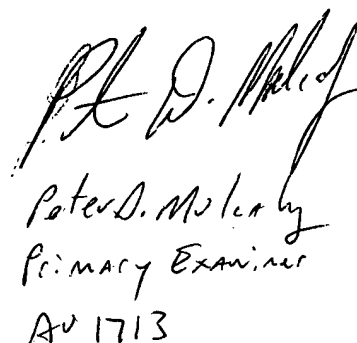 Peter D. Mulcahy
Peter D. Mulcahy
Primary Examiner
AU 1713